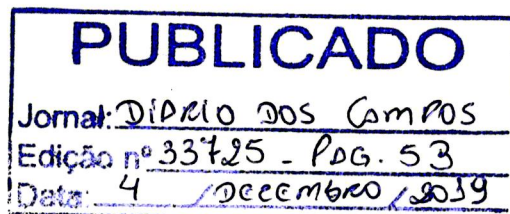 PUBLICADO
Jornal: DIÁRIO DOS CAMPOS
Edição nº 33725 - PÁG. 5B
Data: 4 / DEZEMBRO / 2019